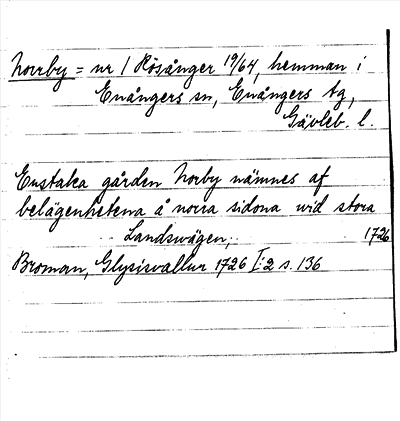 Norrby = nr 1 Rösånger 19/64, hemman i
Enångers sn, Enångers tg,
Gävleb. l.
Enstaka gården Norby nämnes af
belägenhetena å norra sidona wid stora
Landswägen, 1726
Broman, Glysisvallur 1726 I:2 s. 136